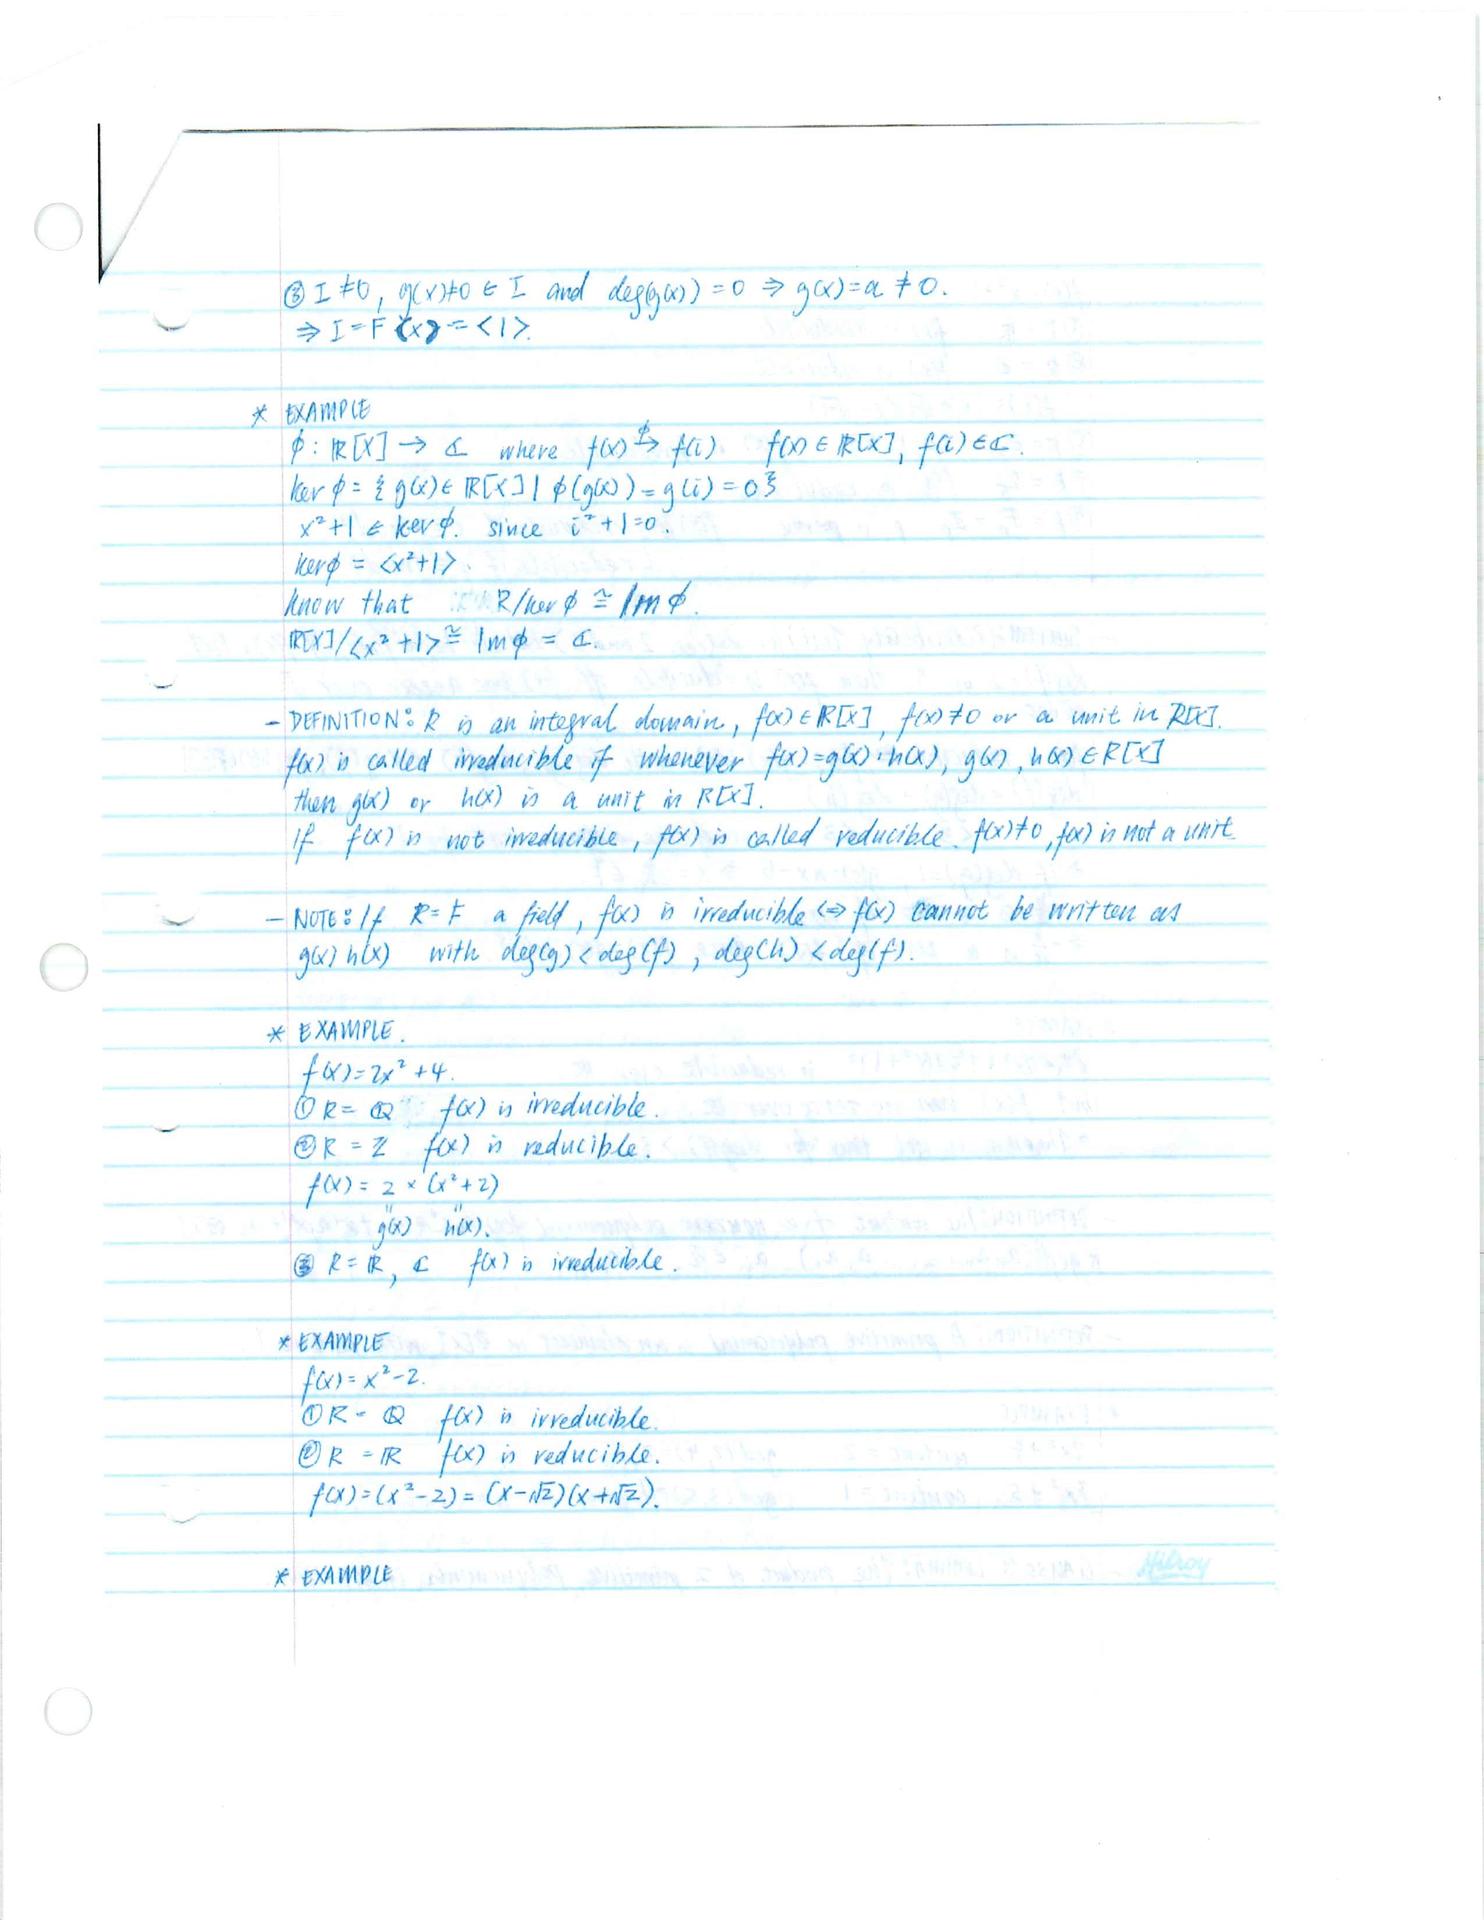 ③ I ≠ 0, g(x) ≠ 0 ∈ I and deg(g(x)) = 0 ⇒ g(x) = a ≠ 0.
⇒ I = F(x) = <1>.
* EXAMPLE
ϕ: ℝ[x] → ℂ where f(x) →^ϕ f(i) f(x) ∈ ℝ[x], f(i) ∈ ℂ.
ker ϕ = { g(x) ∈ ℝ[x] | ϕ(g(x)) = g(i) = 0}
x²+1 ∈ ker ϕ. since i²+1=0.
ker ϕ = <x²+1>.
know that R/ker ϕ ≅ Im ϕ.
ℝ[x]/<x²+1> ≅ Im ϕ = ℂ.
- DEFINITION: R is an integral domain, f(x) ∈ R[x], f(x) ≠ 0 or a unit in R[x].
f(x) is called irreducible if whenever f(x) = g(x)·h(x), g(x), h(x) ∈ R[x]
then g(x) or h(x) is a unit in R[x].
If f(x) is not irreducible, f(x) is called reducible. f(x) ≠ 0, f(x) is not a unit
- NOTE: If R = F a field, f(x) is irreducible ⇔ f(x) cannot be written as
g(x) h(x) with deg(g) < deg(f), deg(h) < deg(f).
* EXAMPLE.
f(x) = 2x² + 4.
① R = ℚ f(x) is irreducible.
② R = ℤ f(x) is reducible.
f(x) = 2 × (x²+2)
" "
g(x) h(x).
③ R = ℝ, ℂ f(x) is irreducible.
* EXAMPLE
f(x) = x² - 2.
① R = ℚ f(x) is irreducible.
② R = ℝ f(x) is reducible.
f(x) = (x²-2) = (x-√2)(x+√2).
* EXAMPLE
Hilroy